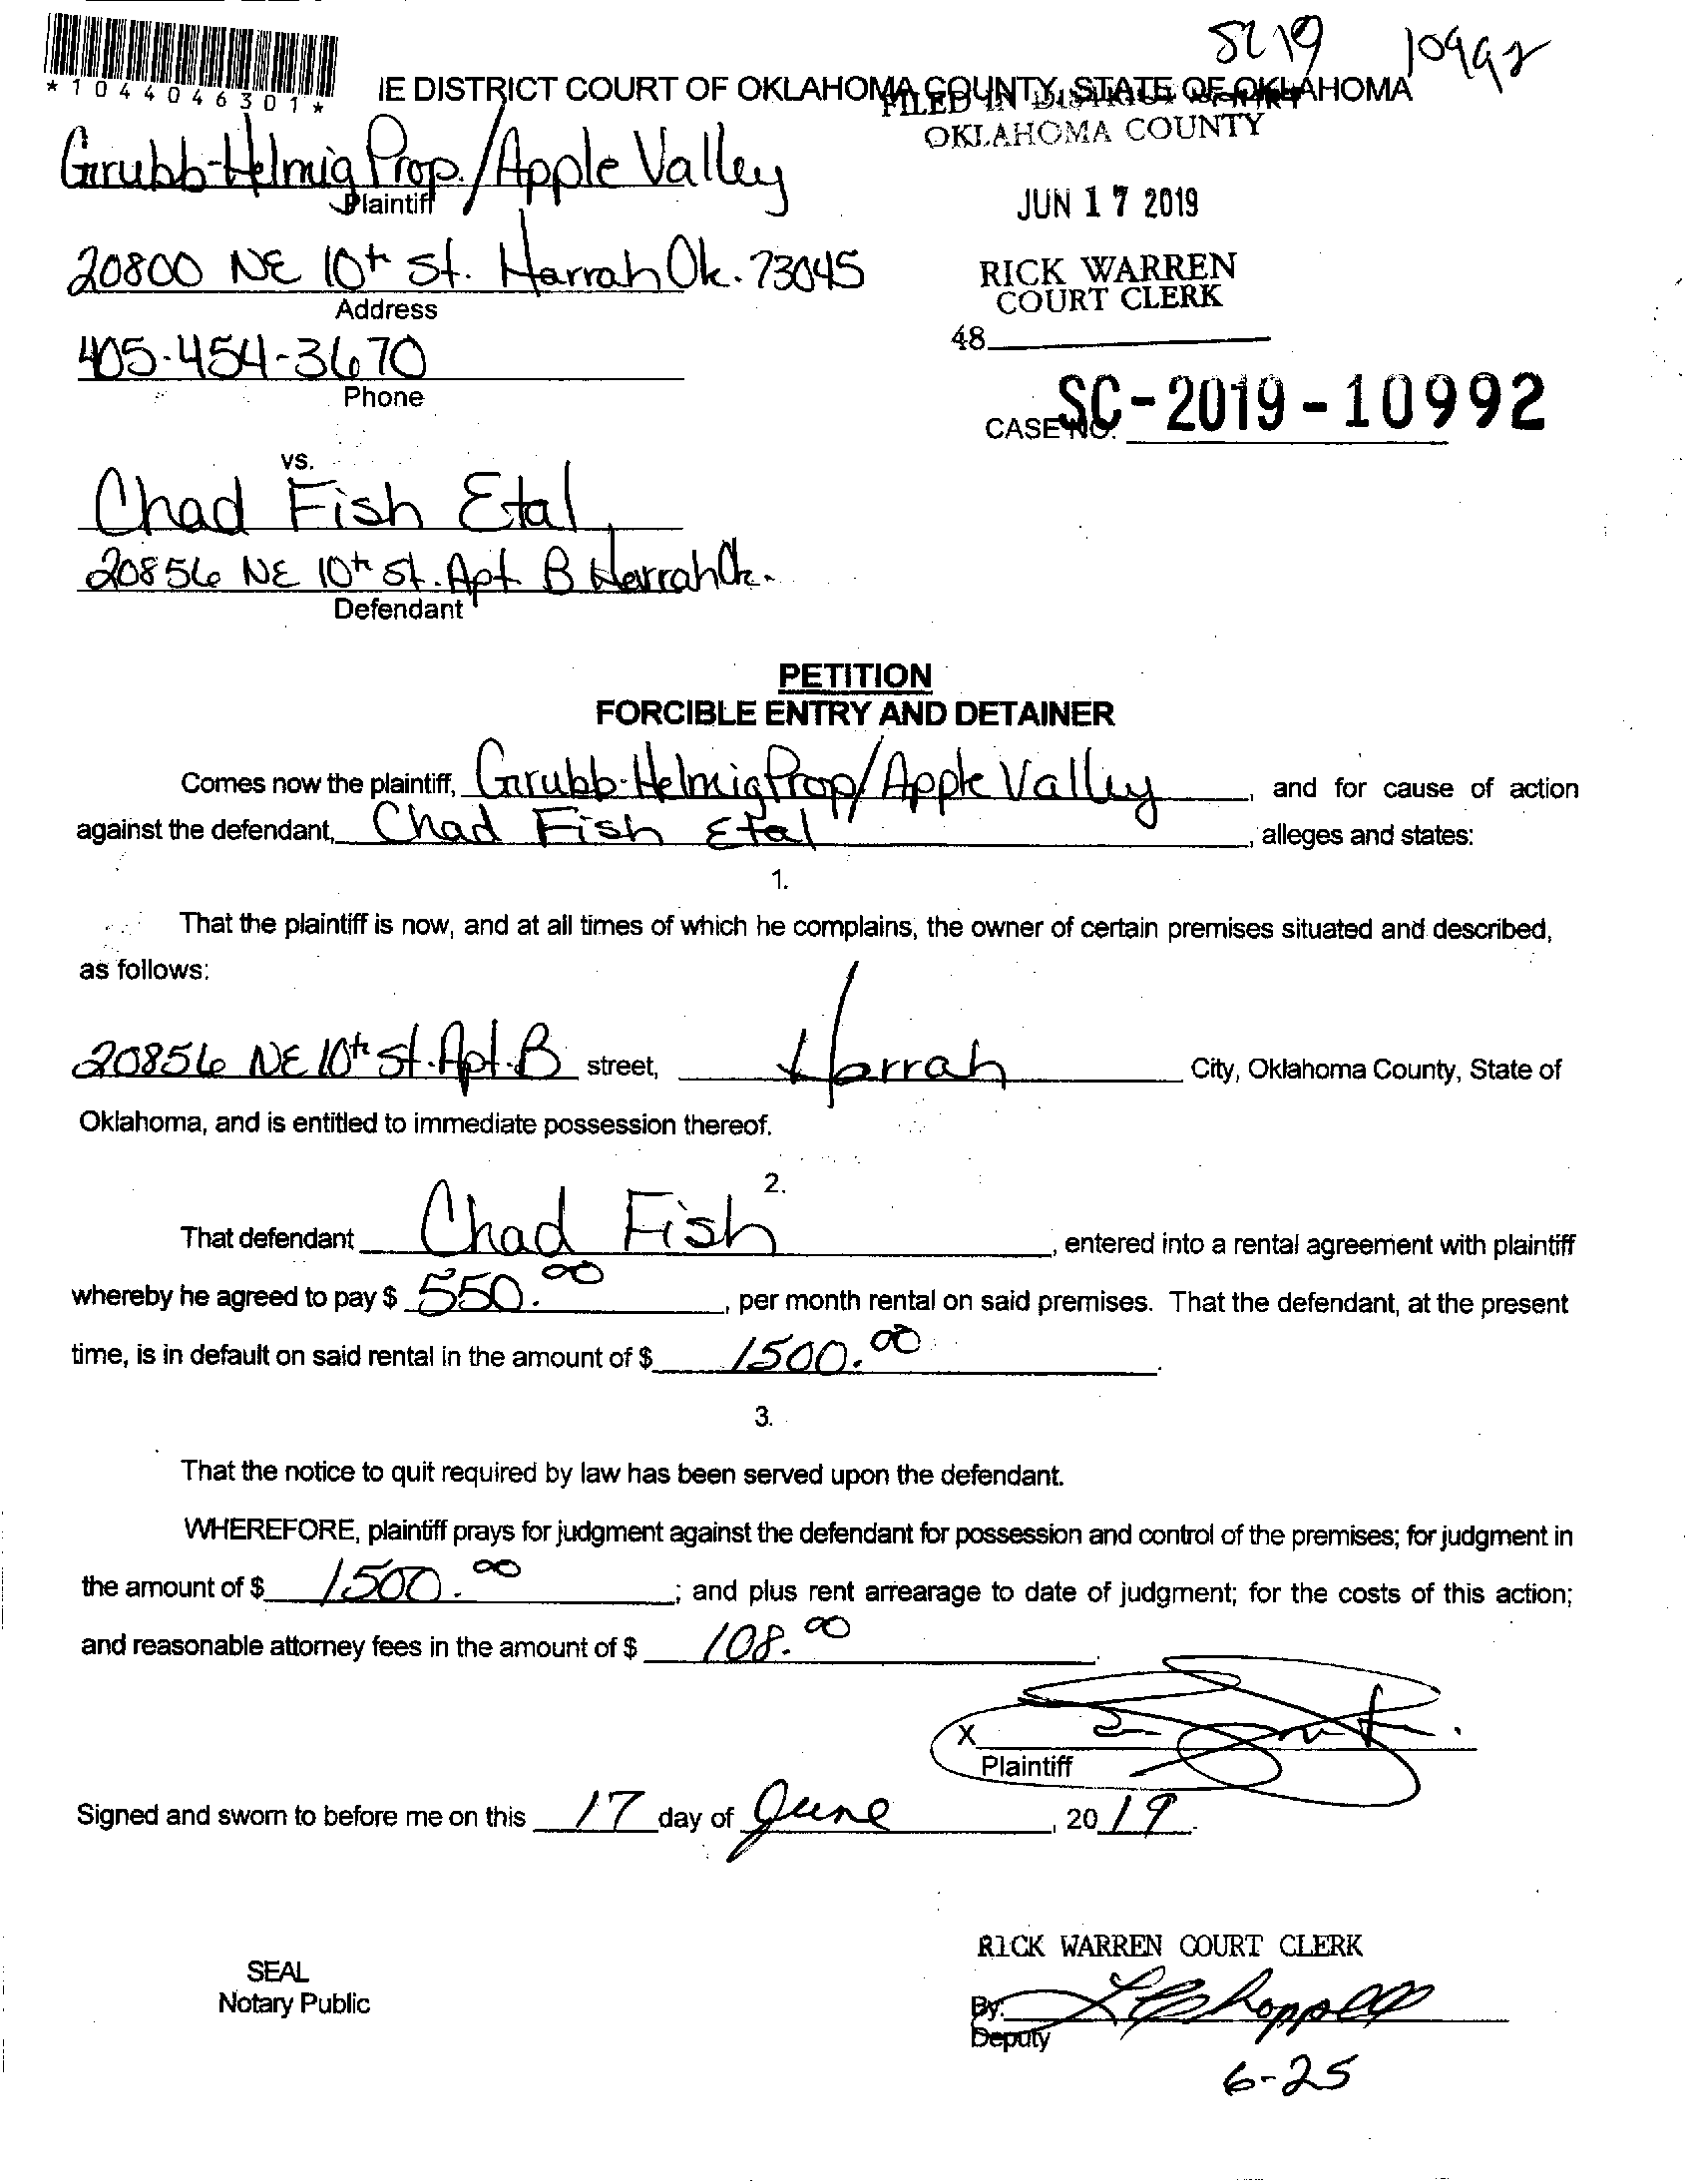 SC 19 10992
*1044046301*
IE DISTRICT COURT OF OKLAHOMA COUNTY, STATE OF OKLAHOMA
FILED IN DISTRICT COURT
OKLAHOMA COUNTY
Grubb-Helmig Prop./Apple Valley
Plaintiff
JUN 17 2019
20800 NE 10th St. Harrah Ok. 73045
Address
RICK WARREN
COURT CLERK
405-454-3670
Phone
48
CASE NO. SC-2019-10992
vs.
Chad Fish Etal
20856 NE 10th St. Apt B Harrah Ok.
Defendant
PETITION
FORCIBLE ENTRY AND DETAINER
Comes now the plaintiff, Grubb-Helmig Prop/Apple Valley, and for cause of action
against the defendant, Chad Fish Etal, alleges and states:
1.
That the plaintiff is now, and at all times of which he complains, the owner of certain premises situated and described,
as follows:
20856 NE 10th St. Apt. B street, Harrah City, Oklahoma County, State of
Oklahoma, and is entitled to immediate possession thereof.
2.
That defendant Chad Fish, entered into a rental agreement with plaintiff
whereby he agreed to pay $ 550.00, per month rental on said premises. That the defendant, at the present
time, is in default on said rental in the amount of $ 1500.00.
3.
That the notice to quit required by law has been served upon the defendant.
WHEREFORE, plaintiff prays for judgment against the defendant for possession and control of the premises; for judgment in
the amount of $ 1500.00; and plus rent arrearage to date of judgment; for the costs of this action;
and reasonable attorney fees in the amount of $ 108.00.
X
Plaintiff
Signed and sworn to before me on this 17 day of June, 2019.
RICK WARREN COURT CLERK
SEAL
Notary Public
By:
Deputy
6-25